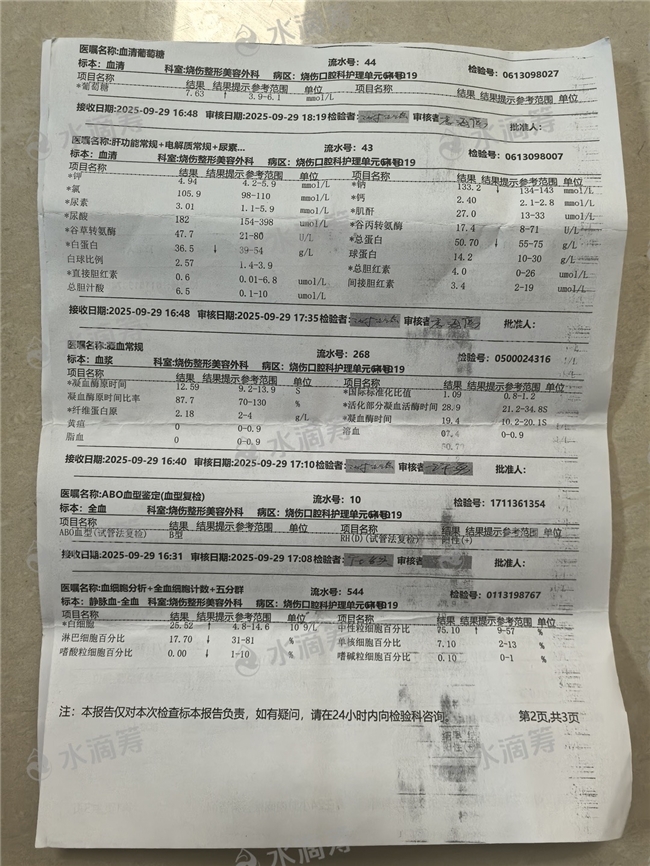 医嘱名称:血清葡萄糖 流水号: 44
标本: 血清 科室:烧伤整形美容外科 病区: 烧伤口腔科护理单元 检验号: 0613098027
项目名称 结果 结果提示 参考范围 单位 项目名称 结果 结果提示 参考范围 单位
*葡萄糖 7.63 ↑ 3.9-6.1 mmol/L
接收日期:2025-09-29 16:48 审核日期:2025-09-29 18:19 检验者: 审核者: 批准人:
医嘱名称:肝功能常规+电解质常规+尿素... 流水号: 43
标本: 血清 科室:烧伤整形美容外科 病区: 烧伤口腔科护理单元 检验号: 0613098007
项目名称 结果 结果提示 参考范围 单位 项目名称 结果 结果提示 参考范围 单位
*钾 4.94 4.2-5.9 mmol/L *钠 133.2 ↓ 134-143 mmol/L
*氯 105.9 98-110 mmol/L *钙 2.40 2.1-2.8 mmol/L
*尿素 3.01 1.1-5.9 mmol/L *肌酐 27.0 13-33 umol/L
*尿酸 182 154-398 umol/L *谷丙转氨酶 17.4 8-71 U/L
*谷草转氨酶 47.7 21-80 U/L *总蛋白 50.70 ↓ 55-75 g/L
*白蛋白 36.5 ↓ 39-54 g/L 球蛋白 14.2 10-30 g/L
白球比例 2.57 1.4-3.9 *总胆红素 4.0 0-26 umol/L
*直接胆红素 0.6 0.01-6.8 umol/L 间接胆红素 3.4 2-19 umol/L
总胆汁酸 6.5 0.1-10 umol/L
接收日期:2025-09-29 16:48 审核日期:2025-09-29 17:35 检验者: 审核者: 批准人:
医嘱名称:凝血常规 流水号: 268
标本: 血浆 科室:烧伤整形美容外科 病区: 烧伤口腔科护理单元 检验号: 0500024316
项目名称 结果 结果提示 参考范围 单位 项目名称 结果 结果提示 参考范围 单位
*凝血酶原时间 12.59 9.2-13.9 S *国际标准化比值 1.09 0.8-1.2
凝血酶原时间比率 87.7 70-130 % *活化部分凝血活酶时间 21.2-34.8S
*纤维蛋白原 2.18 2-4 g/L *凝血酶时间 19.4 10.2-20.1S
黄疸 0 0-0.9 溶血 0-0.9
脂血 0 0-0.9
接收日期:2025-09-29 16:40 审核日期:2025-09-29 17:10 检验者: 审核者: 批准人:
医嘱名称:ABO血型鉴定(血型复检) 流水号: 10
标本: 全血 科室:烧伤整形美容外科 病区: 烧伤口腔科护理单元 检验号: 1711361354
项目名称 结果 结果提示 参考范围 单位 项目名称 结果 结果提示 参考范围 单位
ABO血型(试管法复检) B型 RH(D)(试管法复检) 阳性(+)
接收日期:2025-09-29 16:31 审核日期:2025-09-29 17:08 检验者: 审核者: 批准人:
医嘱名称:血细胞分析+全血细胞计数+五分群 流水号: 544
标本: 静脉血-全血 科室:烧伤整形美容外科 病区: 烧伤口腔科护理单元 检验号: 0113198767
项目名称 结果 结果提示 参考范围 单位 项目名称 结果 结果提示 参考范围 单位
*白细胞 25.52 ↑ 4.8-14.6 10^9/L 中性粒细胞百分比 75.10 ↑ 9-57 %
淋巴细胞百分比 17.70 ↓ 31-81 % 单核细胞百分比 7.10 2-13 %
嗜酸粒细胞百分比 0.00 ↓ 1-10 % 嗜碱粒细胞百分比 0.10 0-1 %
注: 本报告仅对本次检查标本报告负责, 如有疑问, 请在24小时内向检验科咨询。 第2页,共3页
水滴筹